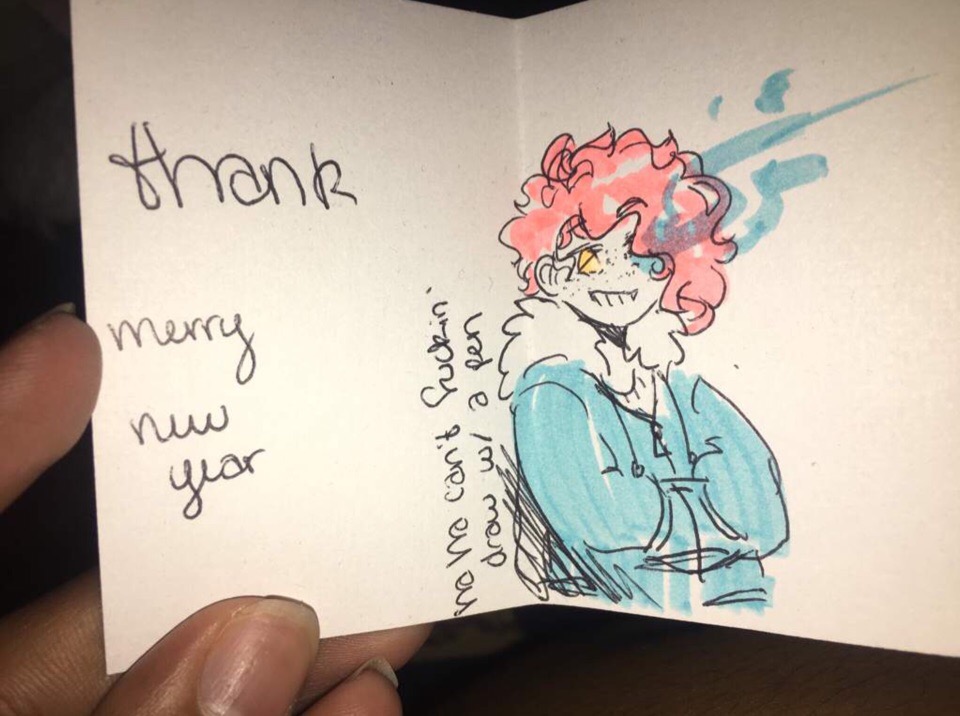 thank
merry
new
year
ha ha can't fuckin'
draw w/ a pen